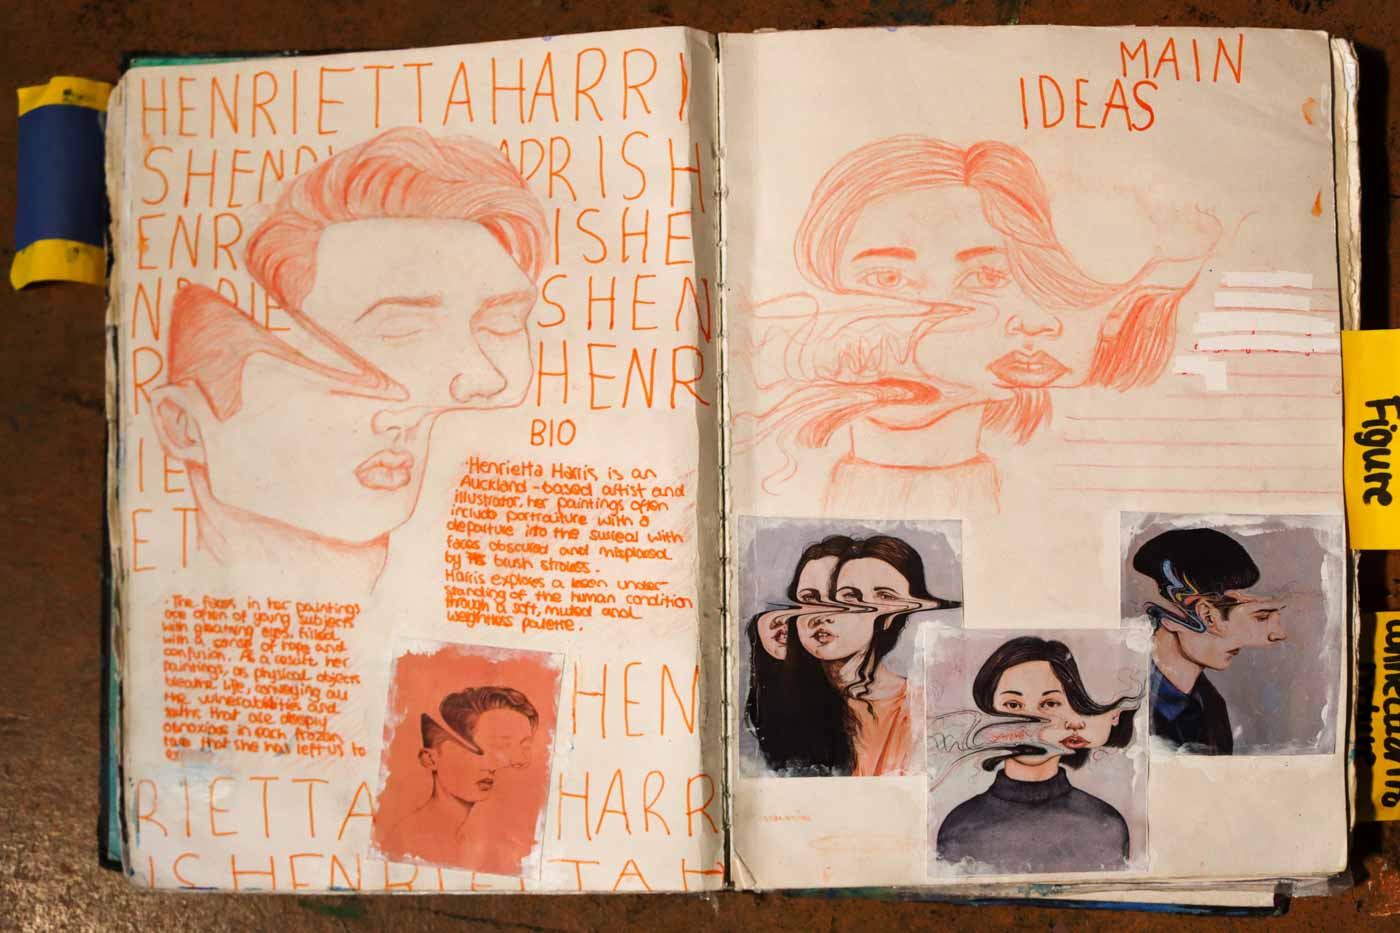 HENRIETTAHARRI
SHENRI ARRISH
ENR ISHE
NRRIE SHEN
R HENR
IE
ET
BIO
·Henrietta Harris is an
Auckland-based artist and
illustrator, her paintings often
include portraiture with a
departure into the surreal with
faces obscured and misplaced
by brush strokes.
Harris explores a keen under-
standing of the human condition
through a soft, muted and
weightless palette.
·The faces in her paintings
are often of young subjects
with gleaming eyes, filled
with a sense of hope and
confusion. As a result her
paintings, as physical objects
become life, conveying all
the vulnerabilities and
truths that are deeply
obnoxious in each frozen
face that she has left us to
HEN
RIETTA HARR
ISHENRIETTAH
MAIN
IDEAS
Figure